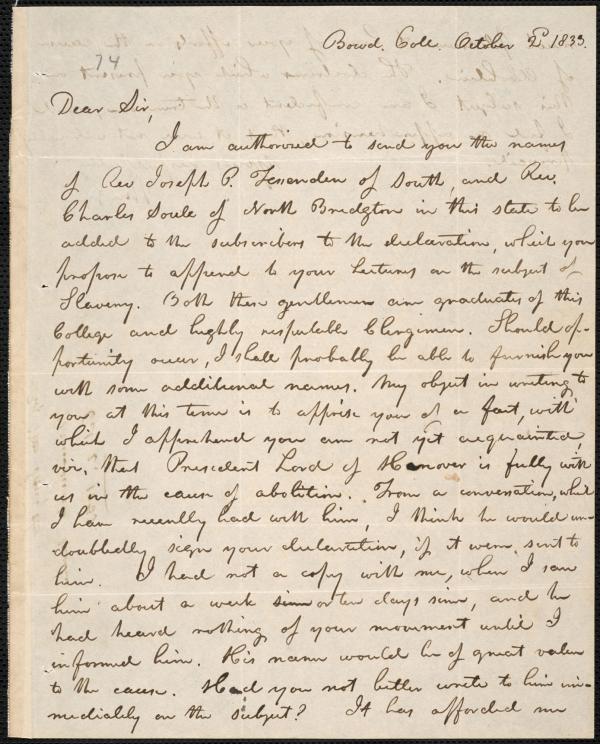 Bowd. Coll. October 2d 1833.
74
Dear Sir,
I am authorized to send you the names
of Rev Joseph P. Fessenden of South, and Rev.
Charles Soule of North Bridgton in this state to be
added to the subscribers to the declaration, which you
propose to append to your Lectures on the subject of
Slavery. Both these gentlemen are graduates of this
College and highly respectable Clergimen. Should op-
portunity occur, I shall probably be able to furnish you
with some additional names. My object in writing to
you at this time is to apprise you of a fact, with
which I apprehend you are not yet acquainted,
viz, that President Lord of Hanover is fully with
us in the cause of abolition. From a conversation, which
I have recently had with him, I think he would un-
doubtedly sign your declaration, if it were sent to
him. I had not a copy with me, when I saw
him about a week or ten days since, and he
had heard nothing of your movement until I
informed him. His name would be of great value
to the cause. Had you not better write to him im-
mediately on the subject? It has afforded me